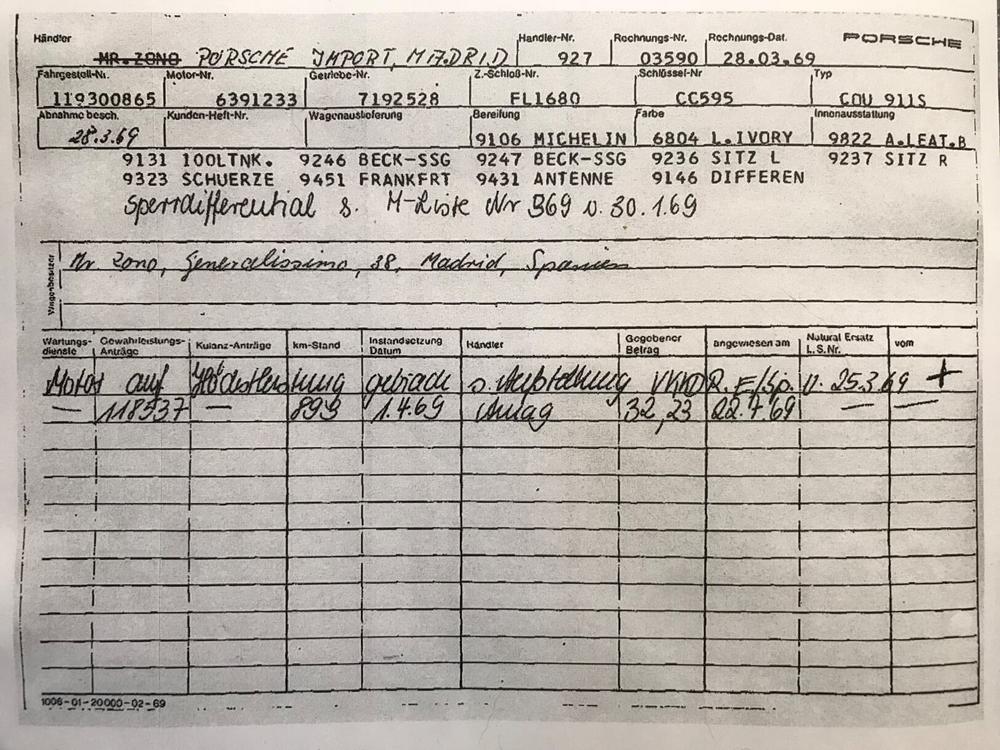 Händler Handler-Nr. Rechnungs-Nr. Rechnungs-Dat. PORSCHE
MR. ZONO PORSCHE IMPORT, MADRID 927 03590 28.03.69
Fahrgestell-Nr. Motor-Nr. Getriebe-Nr. Z.-Schloß-Nr. Schlüssel-Nr Typ
119300865 6391233 7192528 FL1680 CC595 COU 911S
Abnahme besch. Kunden-Heft-Nr. Wagenauslieferung Bereifung Farbe Innenausstattung
28.3.69 9106 MICHELIN 6804 L.IVORY 9822 A.LEAT.B
9131 100LTNK. 9246 BECK-SSG 9247 BECK-SSG 9236 SITZ L 9237 SITZ R
9323 SCHUERZE 9451 FRANKFRT 9431 ANTENNE 9146 DIFFEREN
Sperrdifferential s. M-Liste Nr 369 v. 30.1.69
Wagenbesitzer
Mr Zono, Generalissimo, 38, Madrid, Spanien
Wartungs-dienste Gewährleistungs-Anträge Kulanz-Anträge km-Stand Instandsetzung Datum Händler Gegebener Betrag angewiesen am Natural Ersatz L.S.Nr. vom
Motor auf Höchstleistung gebracht s. VKKD R. E/Sp. v. 25.3.69 +
— 118537 — 899 1.4.69 Amag 32,23 22.7.69 — —
1006-01-20000-02-69